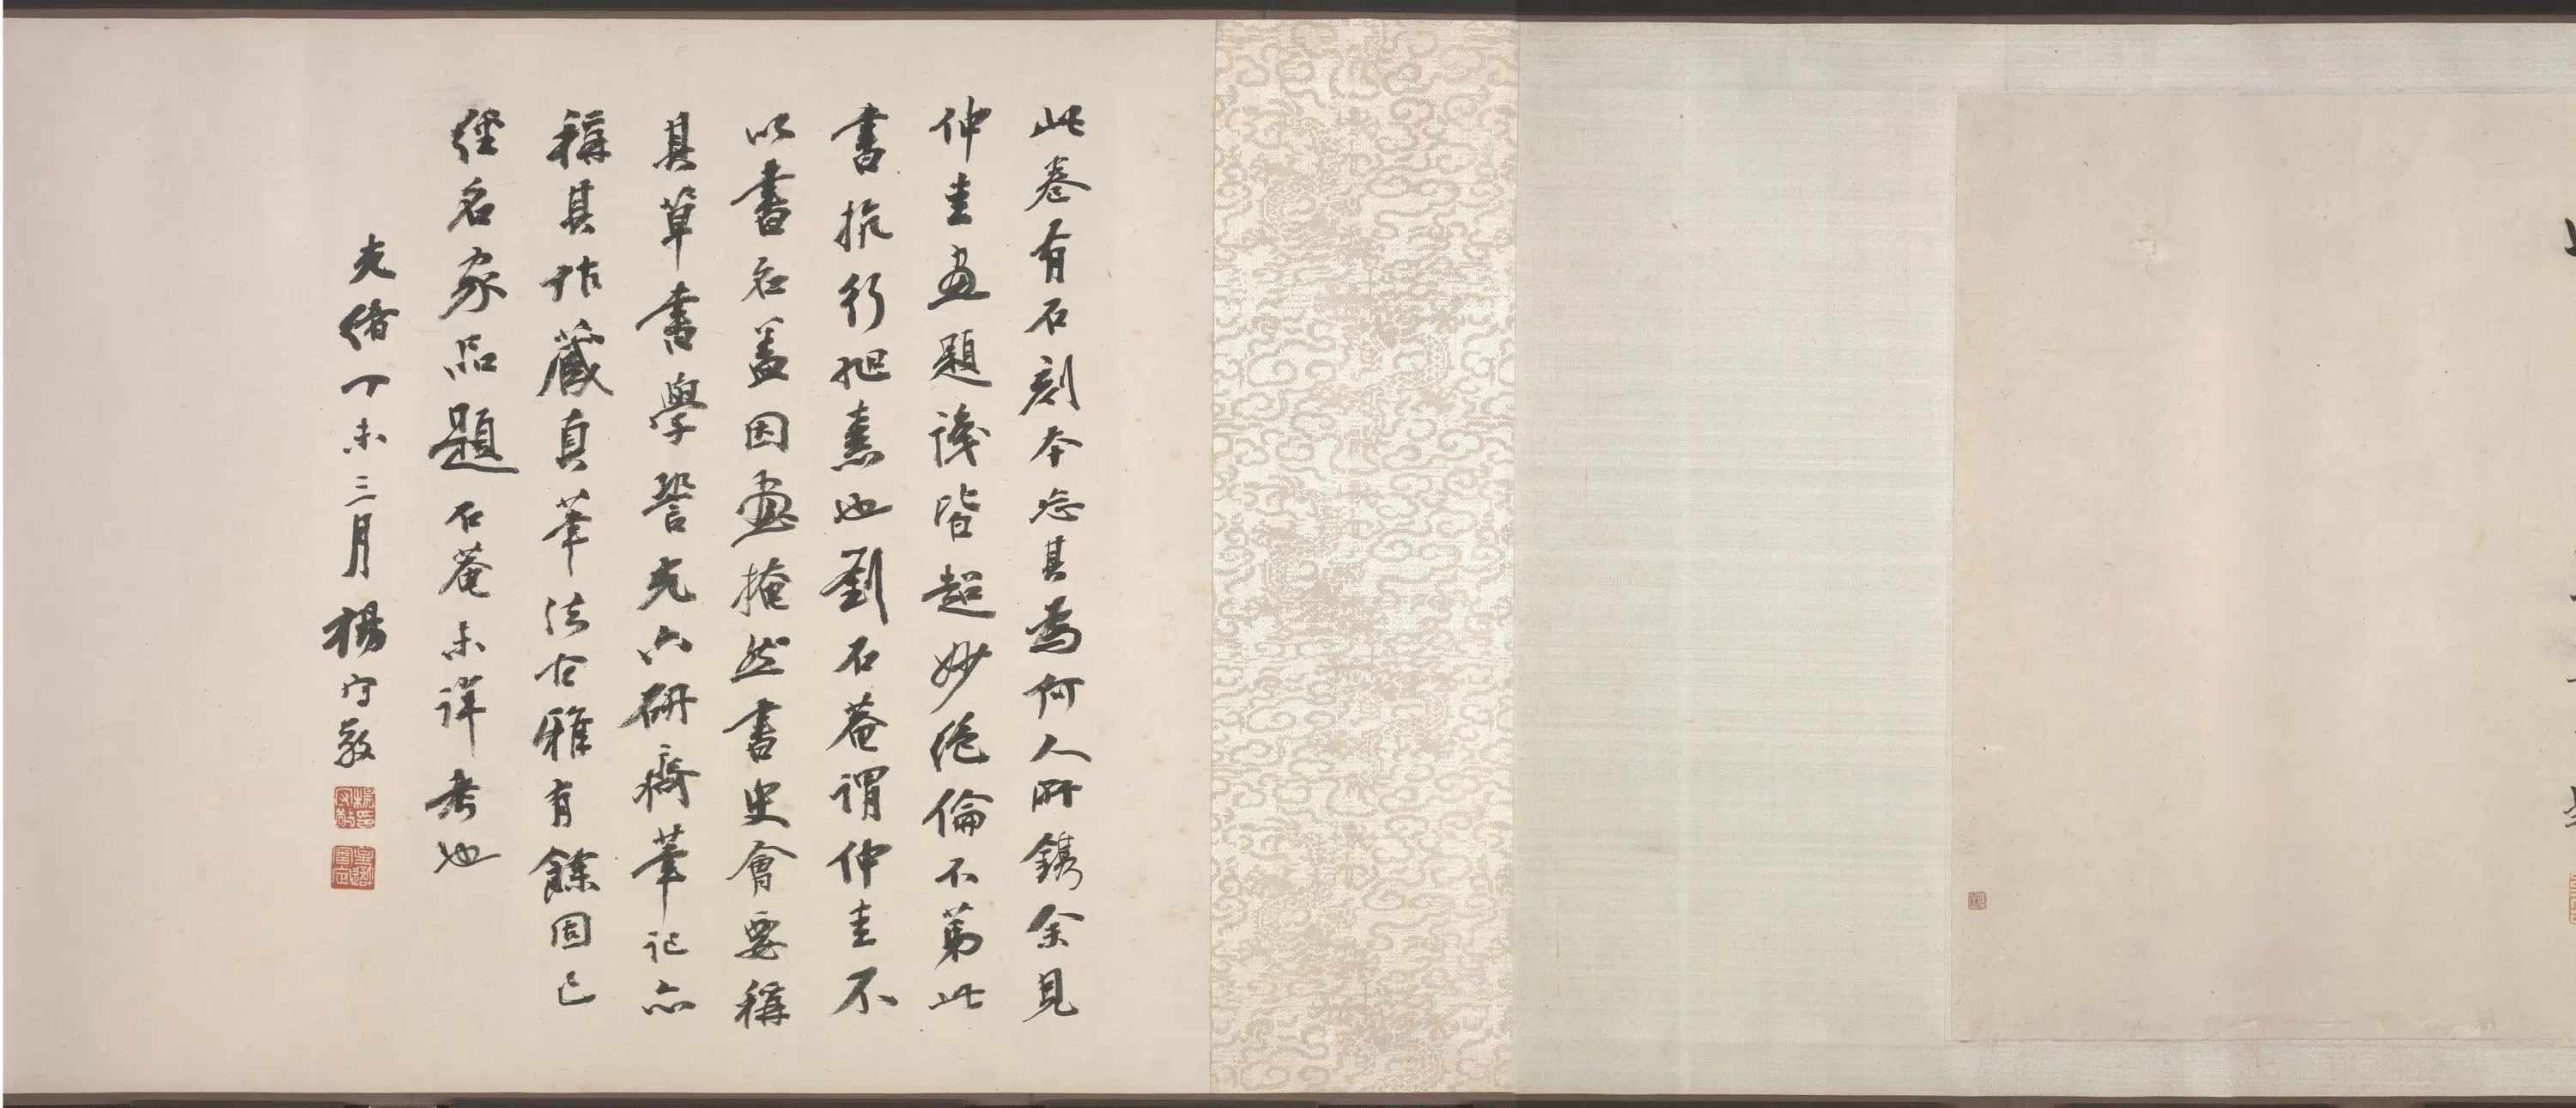 此卷有石刻本忘其為何人所鐫余見
仲圭畫題識皆超妙絕倫不第此
書抗行旭素也劉石菴謂仲圭不
以書名蓋因畫掩然書史會要稱
其草書學䛒光六研齋筆記亦
稱其作藏真筆法古雅有餘固已
經名家品題石菴未詳考也
光緒丁未三月楊守敬